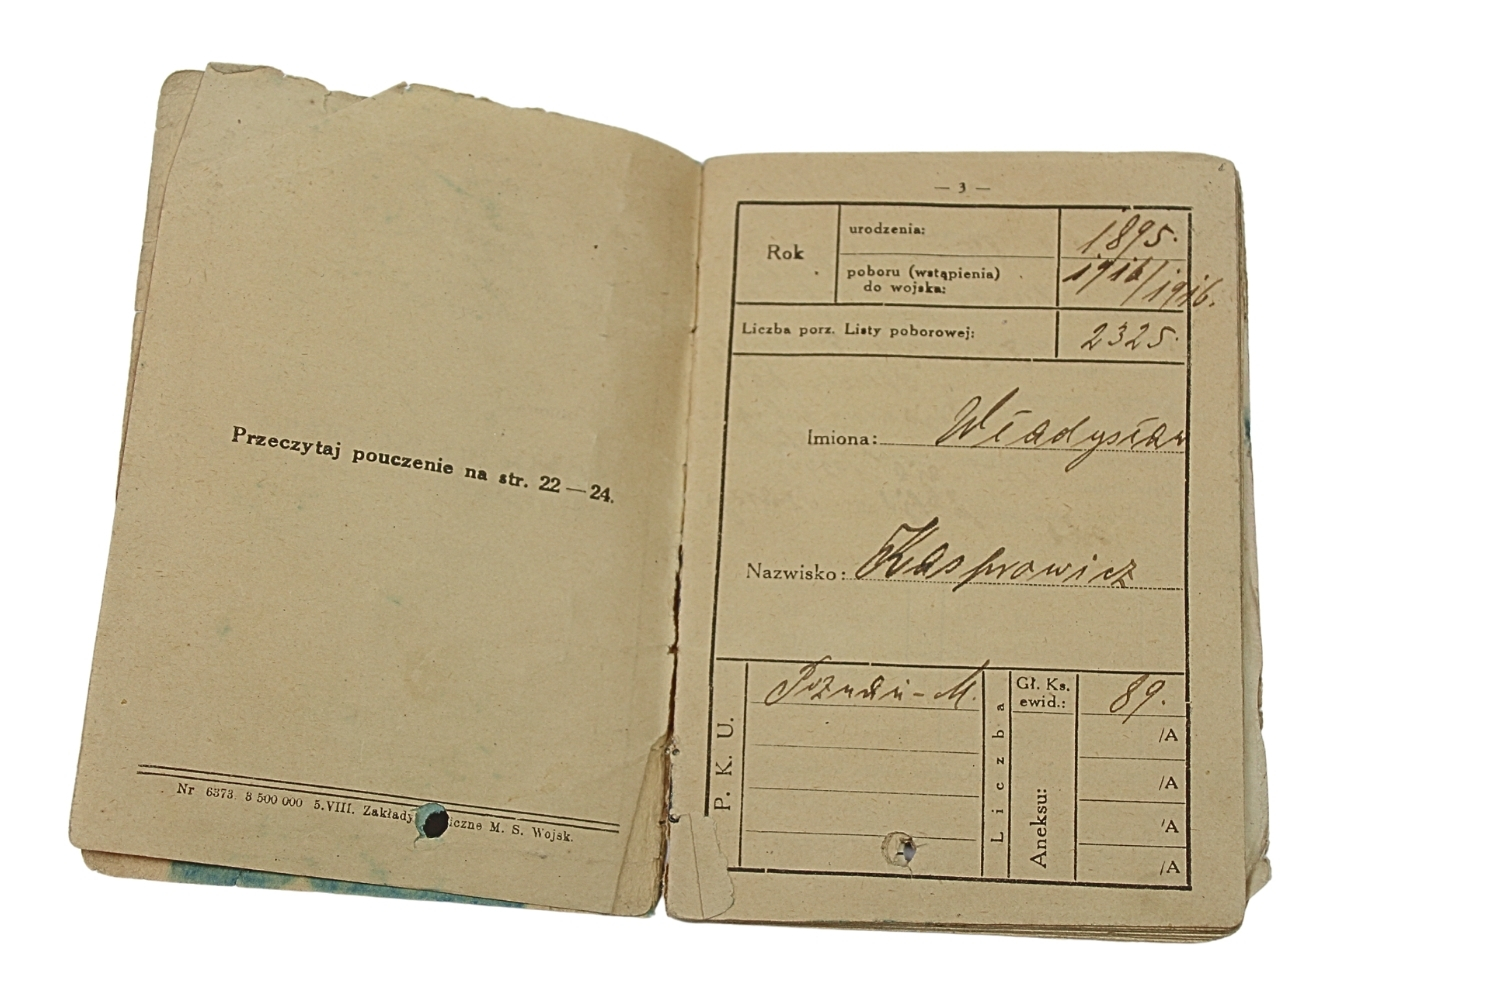 Przeczytaj pouczenie na str. 22—24.
Nr 6373. 3 500 000 5.VIII. Zakłady iczne M. S. Wojsk.
— 3 —
Rok
urodzenia:
1895.
poboru (wstąpienia)
do wojska:
1916/1916.
Liczba porz. Listy poborowej:
2325.
Imiona: Władysław
Nazwisko: Kasprowicz
P. K. U.
Poznań-M.
Liczba
Gł. Ks.
ewid.:
89.
Aneksu:
/A
/A
/A
/A